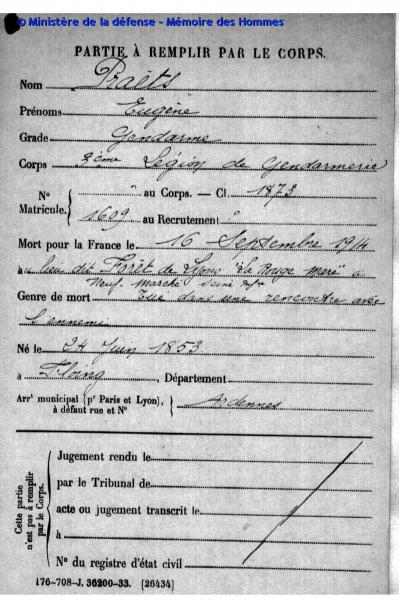 © Ministère de la défense - Mémoire des Hommes
PARTIE À REMPLIR PAR LE CORPS.
Nom Praëts
Prénoms Eugène
Grade Gendarme
Corps 3ème Légion de Gendarmerie
N° Matricule. " au Corps. — Cl. 1873
1699 au Recrutement "
Mort pour la France le 16 Septembre 1914
à au lieu dit Forêt de Lyons "la Rouge mare" à
Neuf-Marché Seine Infre
Genre de mort Tué dans une rencontre avec
l'ennemi
Né le 24 Juin 1853
à Floing, Département
Arrt municipal (pr Paris et Lyon), à défaut rue et N° Ardennes
Cette partie n'est pas à remplir par le Corps.
Jugement rendu le
par le Tribunal de
acte ou jugement transcrit le
à
N° du registre d'état civil
176-708-J. 36200-33. [26434]